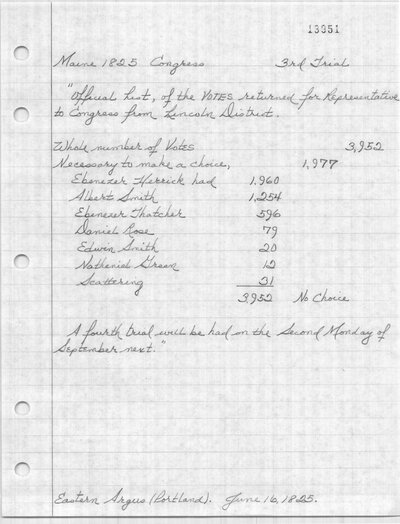 13951
Maine 1825 Congress 3rd Trial
"Official List, of the VOTES returned for Representative
to Congress from Lincoln District.
Whole number of Votes 3,952
Necessary to make a choice, 1,977
Ebenezer Herrick had 1,960
Albert Smith 1,254
Ebenezer Thatcher 596
Daniel Rose 79
Edwin Smith 20
Nathaniel Green 12
Scattering 31
3952 No Choice
A fourth trial will be had on the Second Monday of
September next."
Eastern Argus (Portland). June 16, 1825.